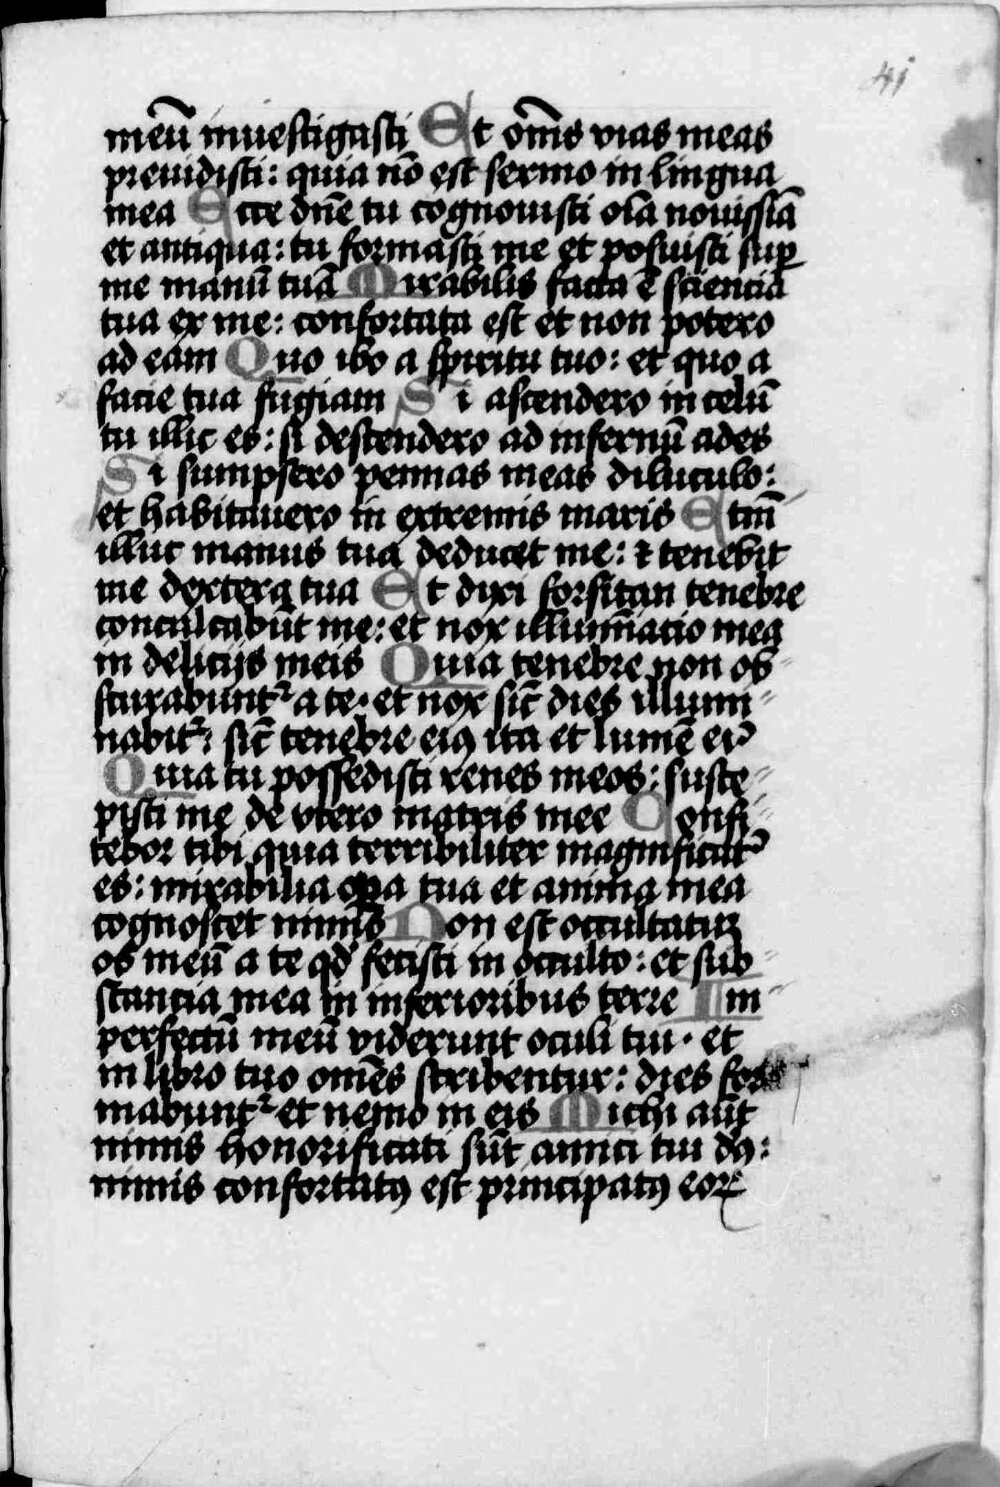 41
meū inuestigasti Et om̄s vias meas
preuidisti: quia nō est sermo in lingua
mea Ecce dn̄e tu cognouisti oīa nouissīa
et antiqua: tu formasti me et posuisti sup̱
me manū tuā Mirabilis facta ē sciencia
tua ex me: confortata est et non potero
ad eam Quo ibo a spiritu tuo: et quo a
facie tua fugiam Si ascendero in celū
tu illic es: si descendero ad infernū ades
Si sumpsero pennas meas diluculo:
et habitauero in extremis maris Etm̄
illuc manus tua deducet me: ⁊ tenebit
me dextera tua Et dixi forsitan tenebre
conculcabūt me: et nox illumīatio mea
in delicijs meis Quia tenebre non ob⸗
scurabunt᷑ a te · et nox sic̄ dies illumi⸗
nabit᷑: sic̄ tenebre eiꝰ ita et lumē ei᷑
Quia tu possedisti renes meos: susce⸗
pisti me de vtero matris mee Confi⸗
tebor tibi quia terribiliter magnificat᷑
es: mirabilia oꝑa tua et anima mea
cognoscet nimis Non est occultatuꝫ
os meū a te qd̄ fecisti in occulto: et sub⸗
stancia mea in inferioribus terre Im⸗
perfectū meū viderunt oculi tui · et
in libro tuo omēs scribentur: dies for
mabunt᷑ et nemo in eis Michi aūt
nimis honorificati sūt amici tui dꝰ:
nimis confortatꝰ est principatꝰ eoꝝ